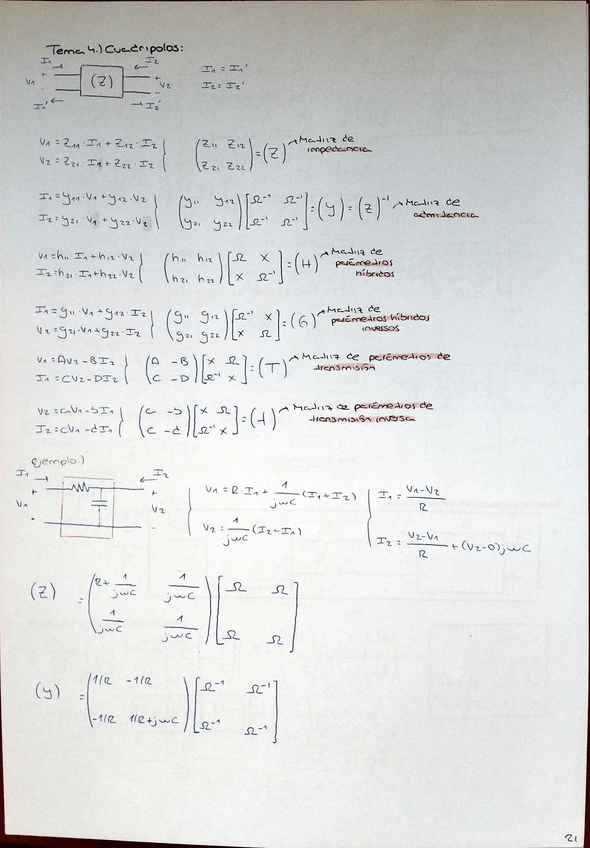 Tema 4.) Cuadripolos:
I1 I2
+ (Z) +
V1 - - V2
I1' I2'
I1 = I1'
I2 = I2'
V1 = Z11 · I1 + Z12 · I2
V2 = Z21 · I1 + Z22 · I2
(Z11 Z12
Z21 Z22) = (Z) Matriz de
impedancia
I1 = y11 · V1 + y12 · V2
I2 = y21 · V1 + y22 · V2
(y11 y12
y21 y22) [Ω⁻¹ Ω⁻¹
Ω⁻¹ Ω⁻¹] = (y) = (Z)⁻¹ Matriz de
admitancia
V1 = h11 · I1 + h12 · V2
I2 = h21 · I1 + h22 · V2
(h11 h12
h21 h22) [Ω x
x Ω⁻¹] = (H) Matriz de
parámetros
híbridos
I1 = g11 · V1 + g12 · I2
V2 = g21 · V1 + g22 · I2
(g11 g12
g21 g22) [Ω⁻¹ x
x Ω] = (G) Matriz de
parámetros híbridos
inversos
V1 = AV2 - BI2
I1 = CV2 - DI2
(A -B
C -D) [x Ω
Ω⁻¹ x] = (T) Matriz de parámetros de
transmisión
V2 = aV1 - bI1
I2 = cV1 - dI1
(a -b
c -d) [x Ω
Ω⁻¹ x] = (t) Matriz de parámetros de
transmisión inversa
ejemplo.)
I1 I2
+ +
V1 V2
- -
V1 = R · I1 + 1/jwC (I1 + I2)
V2 = 1/jwC (I2 + I1)
I1 = V1 - V2/R
I2 = V2 - V1/R + (V2 - 0) jwC
(Z) = (R + 1/jwC 1/jwC
1/jwC 1/jwC) [Ω Ω
Ω Ω]
(y) = (1/R -1/R
-1/R 1/R + jwC) [Ω⁻¹ Ω⁻¹
Ω⁻¹ Ω⁻¹]
21